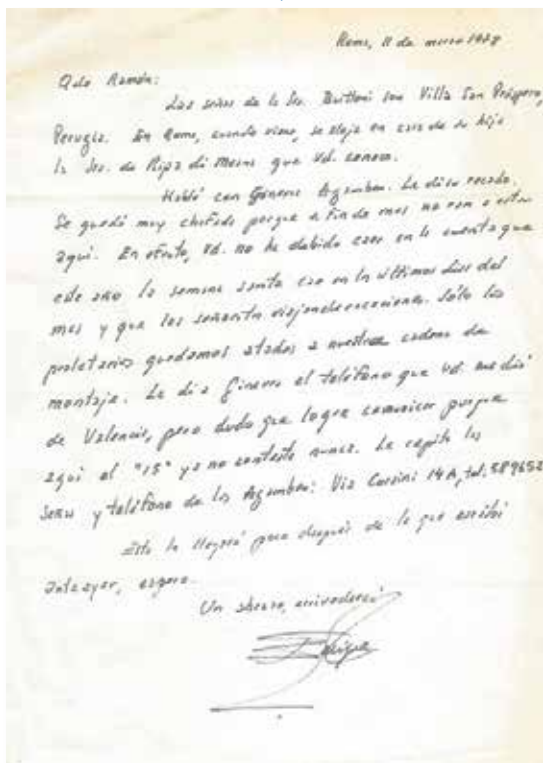 Roma, 11 de marzo 1978
Qdo Ramón:
Las señas de la Sra. Buittoni son Villa San Próspero,
Perugia. En Roma, cuando viene, se aloja en casa de su hija
la Sra. de Ripa di Meana que Vd. conoce.
Hablé con Ginevra Agamben. Le di su recado.
Se quedó muy chafada porque a fin de mes no van a estar
aquí. En efecto, Vd. no ha debido caer en la cuenta que
este año la semana santa cae en los últimos días del
mes y que los señoritos viajan de vacaciones. Sólo los
proletarios quedamos atados a nuestra cadena de
montaje. Le di a Ginevra el teléfono que Vd. me dio
de Valencia, pero dudo que logre comunicar porque
aquí el "15" ya no contesta nunca. Le repito las
señas y teléfono de los Agamben: Via Corsini 14A, tel. 589652
Esta le llegará poco después de la que escribí
anteayer, espero.
Un abrazo, arrivederci
Enrique